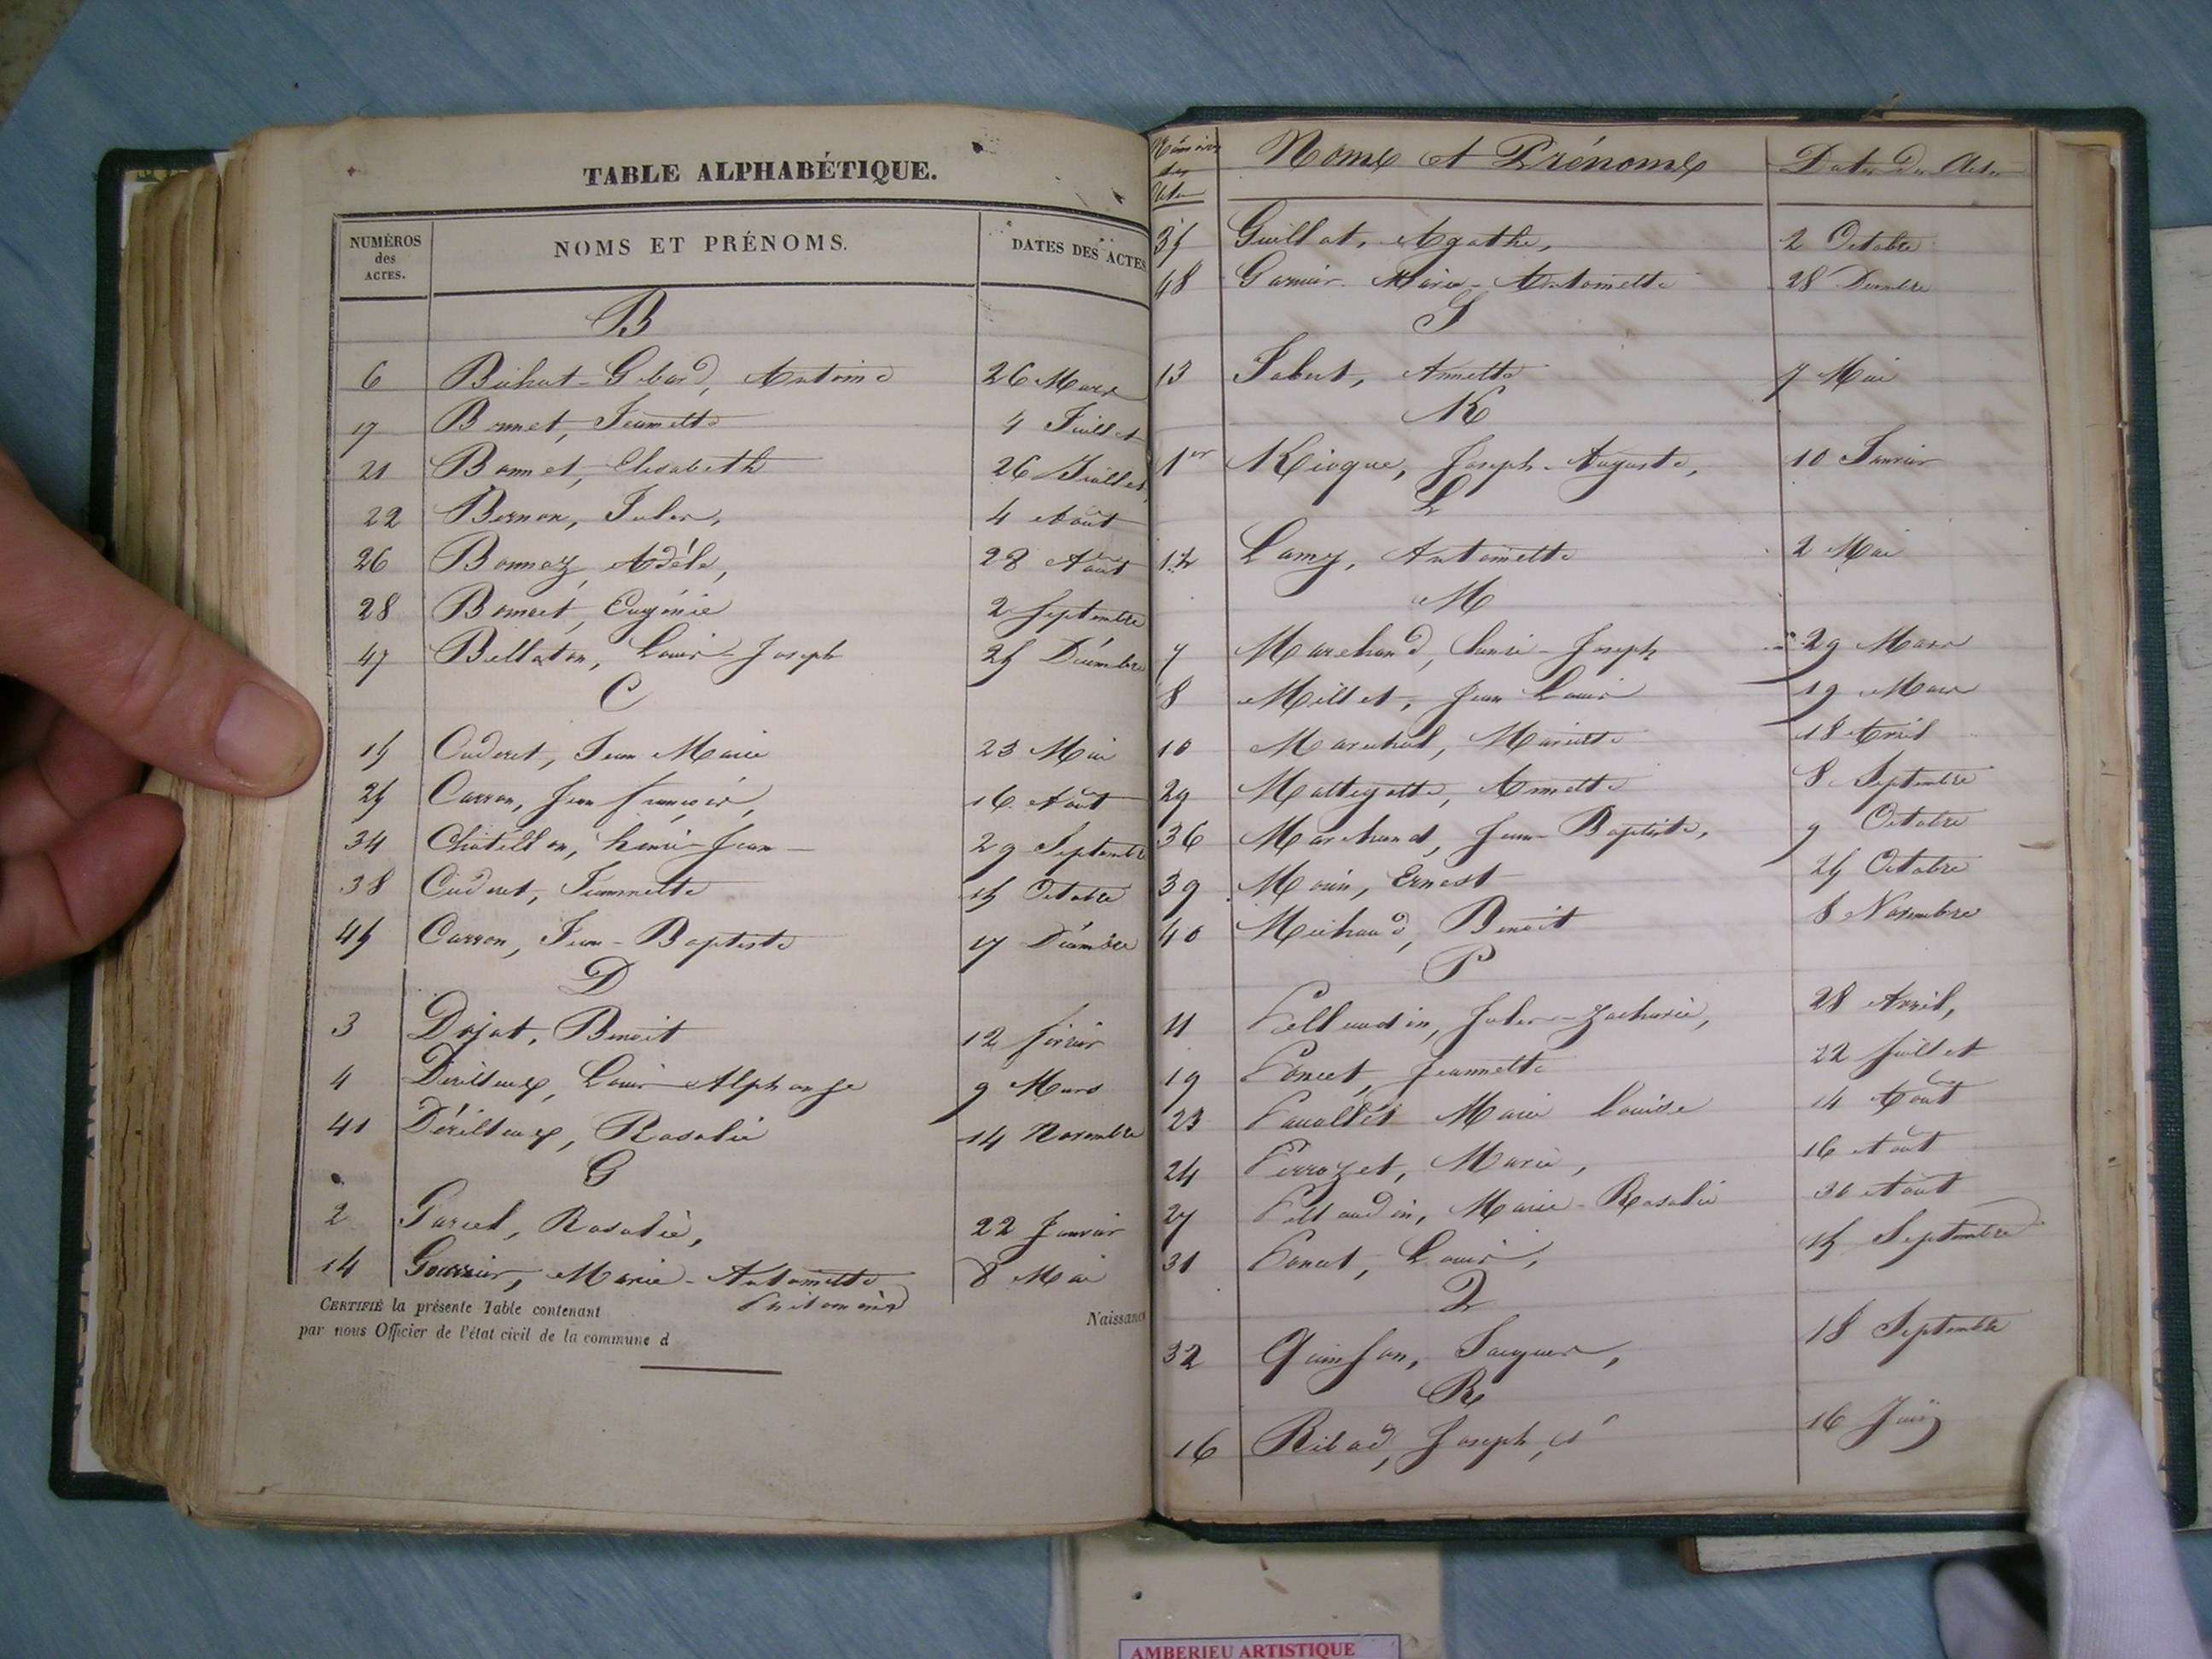 TABLE ALPHABÉTIQUE.
NUMÉROS des ACTES. NOMS ET PRÉNOMS. DATES DES ACTES
B
6 Antoine 26 Mars
17 Bonnet, Jeannette 4 Juillet
21 Bonnet, Elisabeth 26 Juillet
22 Bernon, Jules, 4 Août
26 Bonnaz, Adèle, 28 Août
28 Bonnet, Eugénie 2 Septembre
47 Bellaton, Louis-Joseph 25 Décembre
C
15 Cuderet, Jean Marie 23 Mai
25 Carron, Jean François, 16 Août
34 Châtillon, henri-Jean 29 Septembre
38 Cuderet, Jeannette 15 Octobre
45 Carron, Jean-Baptiste 17 Décembre
D
3 Dojat, Benoit 12 février
4 Louis Alphonse 9 Mars
41 Rosalie 14 Novembre
G
2 Garcel, Rosalie, 22 Janvier
14 Marie-Antoinette 8 Mai
Philomène
CERTIFIÉ la présente Table contenant Naissance
par nous Officier de l'état civil de la commune d
Numéros des Actes Noms et Prénoms Dates des Actes
35 Guillot, Agathe, 2 Octobre
48 Garnier Marie-Antoinette 28 Décembre
J
13 Annette 7 Mai
K
1er Kioque, Joseph-Auguste, 10 Janvier
L
12 Lamy, Antoinette 2 Mai
M
7 Marchand, Joseph 29 Mars
8 Millet, Jean Louis 19 Mars
10 Maréchal, Mariette 18 Avril
29 Annette 8 Septembre
36 Marchand, Jean-Baptiste, 9 Octobre
39 Morin, Ernest 25 Octobre
40 Michaud, Benoit 8 Novembre
P
11 Pellaudin, Jules-Zacharie, 28 Avril,
19 Poncet, Jeannette 22 Juillet
23 Marie Louise 14 Août
24 Perrozet, Marie, 16 Août
27 Pellaudin, Marie-Rosalie 30 Août
31 Poncet, Louis, 15 Septembre
Q
32 Quinson, Jacques, 18 Septembre
R
16 Ribod, Joseph, 16 Juin
AMBERIEU ARTISTIQUE